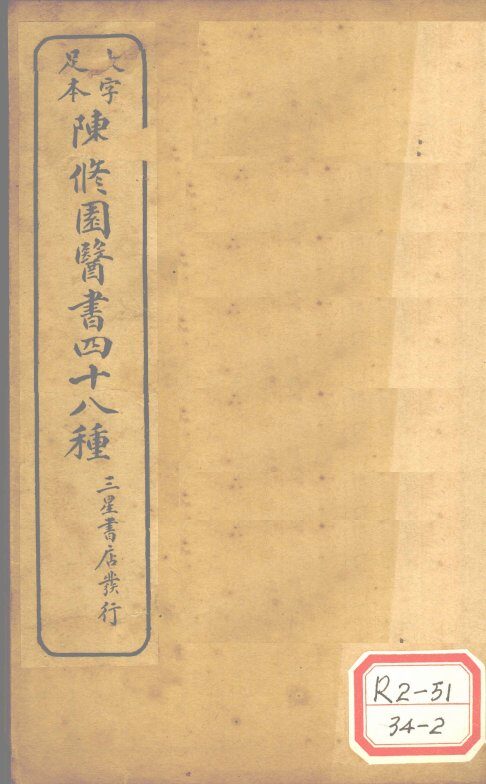 字
足本
陳修園醫書四十八種
三星書店發行
R2-51
34-2